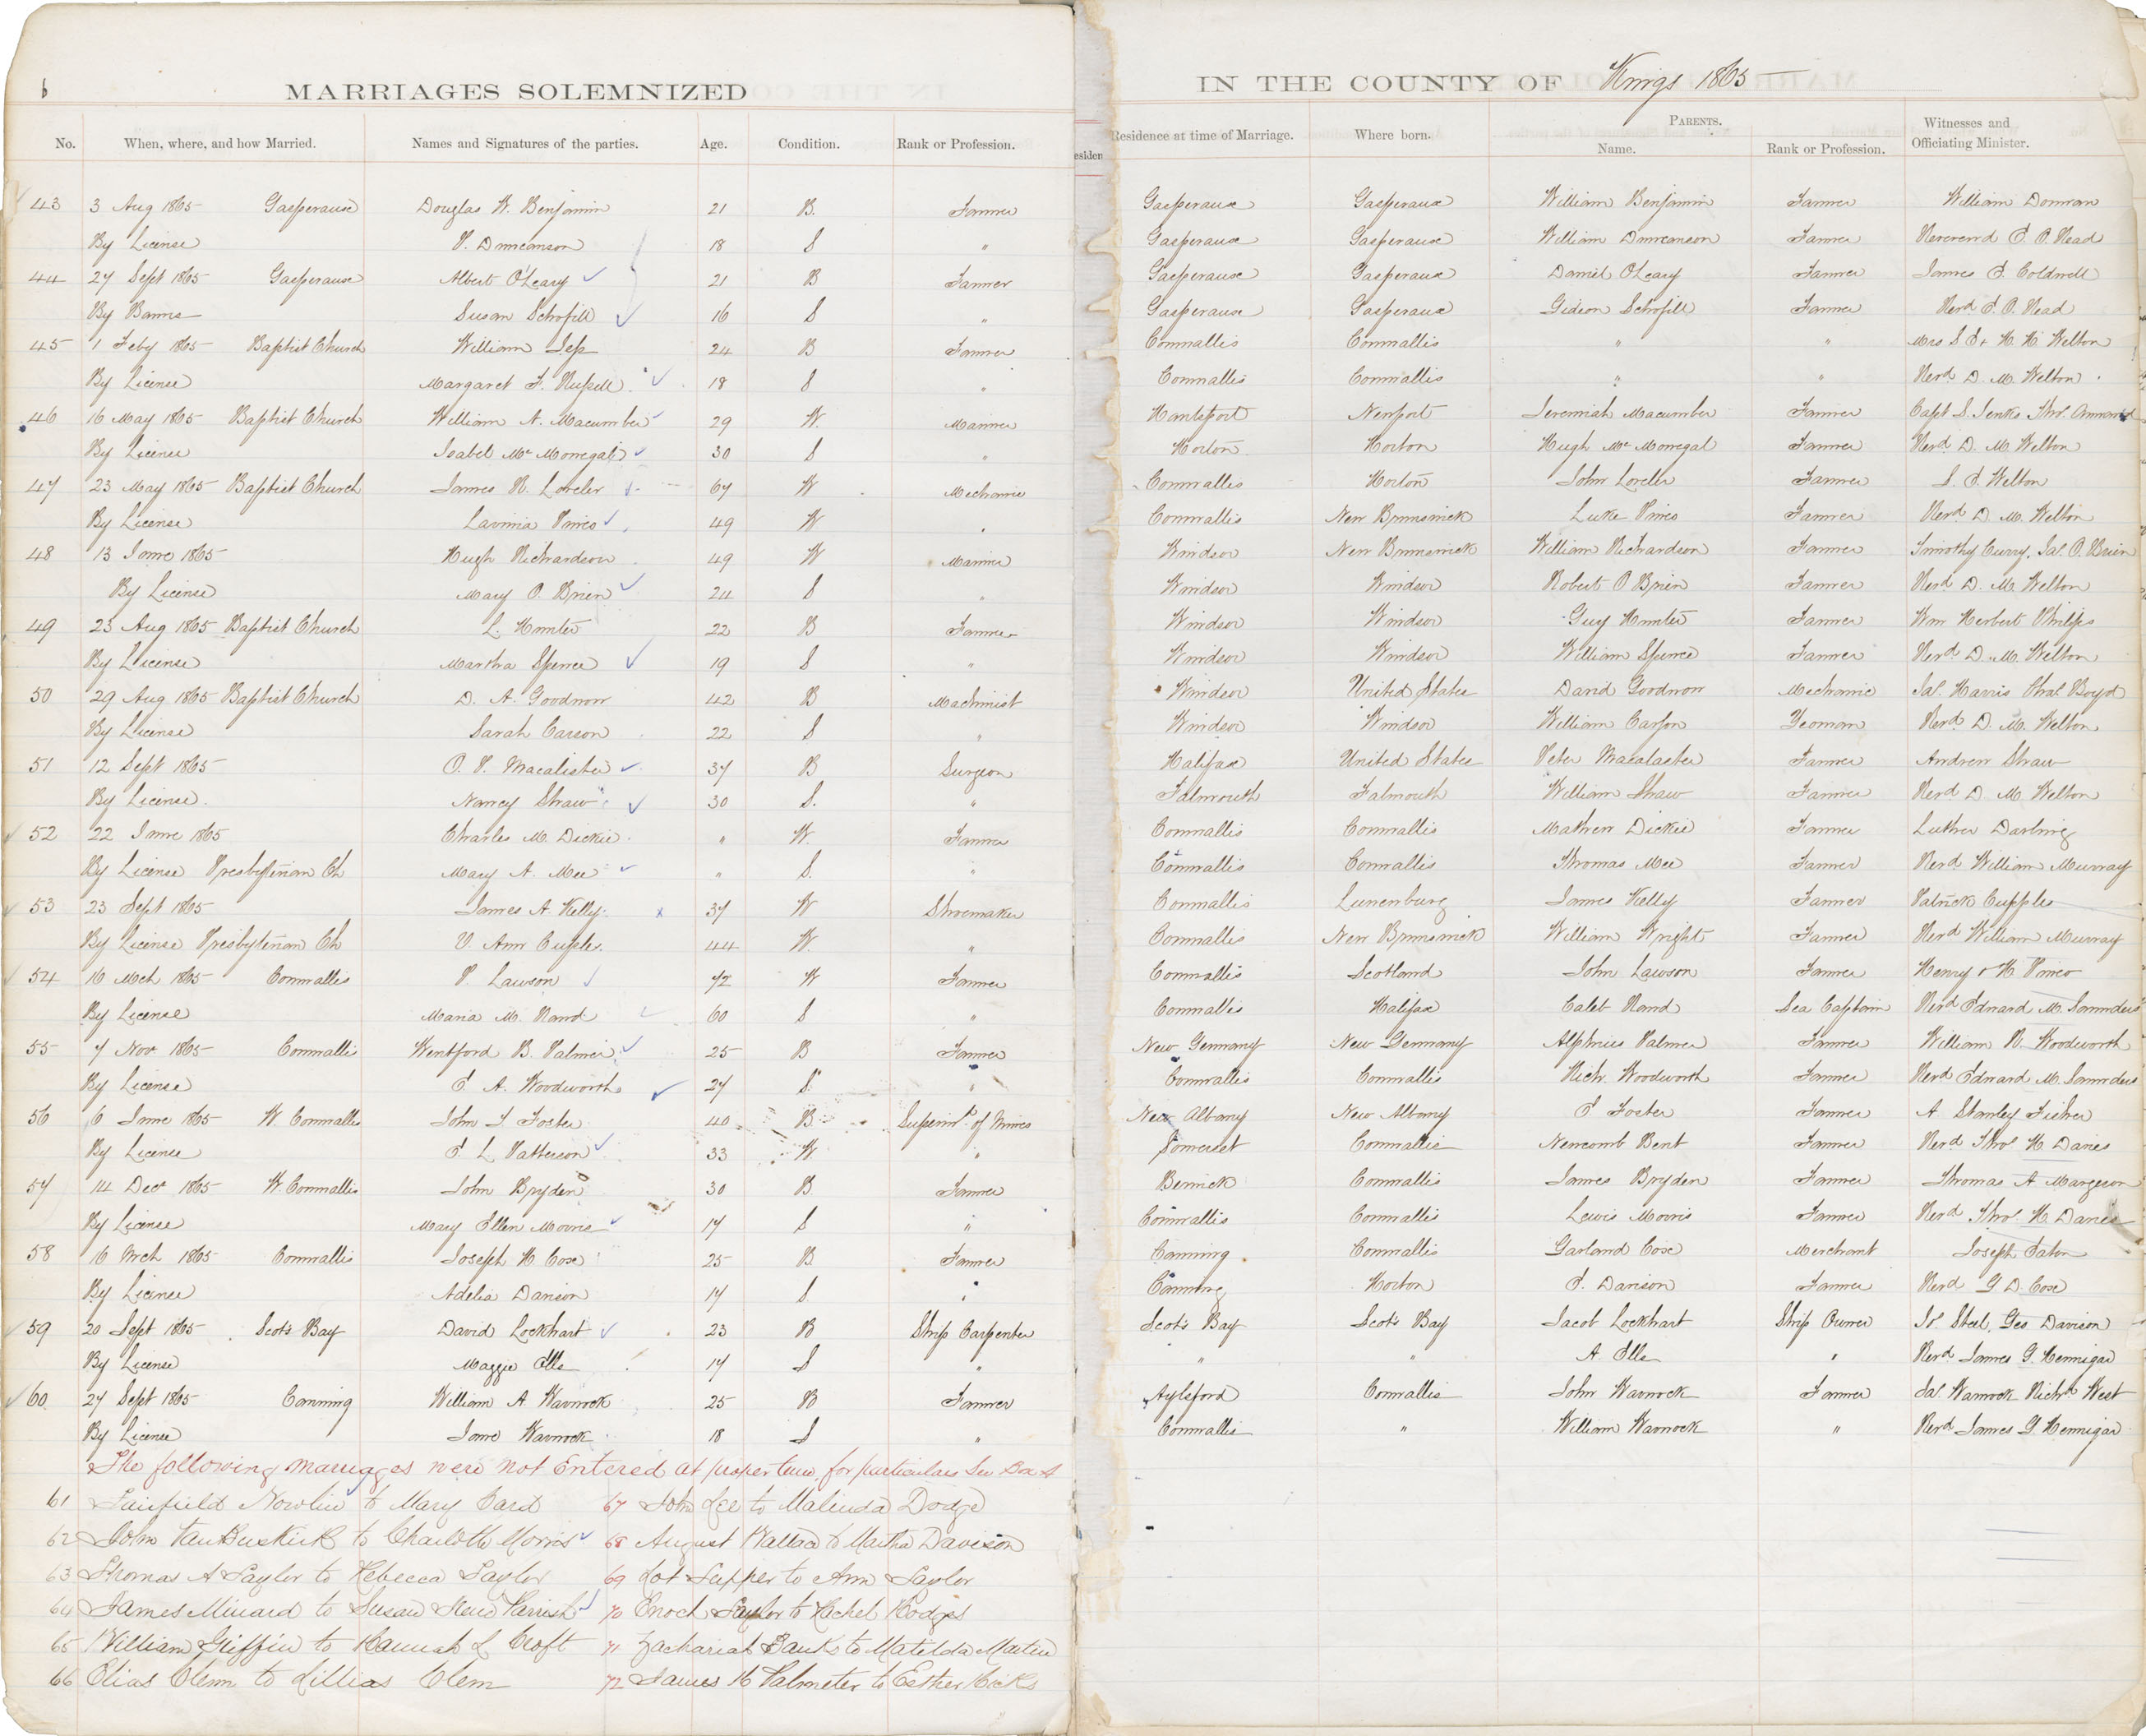 6
MARRIAGES SOLEMNIZED IN THE COUNTY OF Kings 1865
No. When, where, and how Married. Names and Signatures of the parties. Age. Condition. Rank or Profession. Residence at time of Marriage. Where born. PARENTS. Name. Rank or Profession. Witnesses and Officiating Minister.
43 3 Aug 1865 Gasperaux Douglas W. Benjamin 21 B. Farmer Gasperaux Gasperaux William Benjamin Farmer William
By License P. Duncanson 18 S " Gasperaux Gasperaux William Duncanson Farmer Reverend E. O. Read
44 27 Sept 1865 Gasperaux Albert O'Leary 21 B Farmer Gasperaux Gasperaux Daniel O'Leary Farmer James E. Coldwell
By Banns Susan Schofill 16 S " Gasperaux Gasperaux Gideon Schofill Farmer Revd E. O. Read
45 1 Feby 1865 Baptist Church William 24 B Farmer Cornwallis Cornwallis " " Mrs S E & H. H. Welton
By License Margaret F. Russell 18 S " Cornwallis Cornwallis " " Revd D. M. Welton
46 16 May 1865 Baptist Church William N. Macumber 29 W. Mariner Hantsport Newport Jeremiah Macumber Farmer Capt S. Jenks Thos
By License Isabel Mc Monegal 30 S " Horton Horton Hugh Mc Monegal Farmer Revd D. M. Welton
47 23 May 1865 Baptist Church James R. Loveler 67 W Mechanic Cornwallis Horton John Loveler Farmer S. E. Welton
By License Lavinia Pineo 49 W " Cornwallis New Brunswick Luke Pineo Farmer Revd D. M. Welton
48 13 June 1865 Hugh Richardson 49 W Mariner Windsor New Brunswick William Richardson Farmer Timothy Curry, Jas. O. Brien
By License Mary O. Brien 24 S " Windsor Windsor Robert O Brien Farmer Revd D. M. Welton
49 23 Aug 1865 Baptist Church L. Hunter 22 B Farmer Windsor Windsor Guy Hunter Farmer Wm Herbert Philips
By License Martha Spence 19 S " Windsor Windsor William Spence Farmer Revd D. M. Welton
50 29 Aug 1865 Baptist Church D. A. Goodnow 42 B Machinist Windsor United States David Goodnow Mechanic Jas. Harris Chas. Boyd
By License Sarah Carson 22 S " Windsor Windsor William Carson Yeoman Revd D. M. Welton
51 12 Sept 1865 O. P. Macalister 37 B Surgeon Halifax United States Peter Macalaster Farmer Andrew Shaw
By License. Nancy Shaw 30 S. " Falmouth Falmouth William Shaw Farmer Revd D. M. Welton
52 22 June 1865 Charles M. Dickie " W. Farmer Cornwallis Cornwallis Mathew Dickie Farmer Luther Darling
By License Presbyterian Ch Mary A. Mee " S. " Cornwallis Cornwallis Thomas Mee Farmer Revd William Murray
53 23 Sept 1865 James A. Kelly 37 W Shoemaker Cornwallis Lunenburg James Kelly Farmer Patrick Cupples
By License Presbyterian Ch Ann Cuples 44 W. " Cornwallis New Brunswick William Wright Farmer Revd William Murray
54 16 Mch 1865 Cornwallis P. Lawson 72 W Farmer Cornwallis Scotland John Lawson Farmer Henry & H. Pineo
By License Maria M. Rand 60 S " Cornwallis Halifax Caleb Rand Sea Captain Revd Edward M. Saunders
55 7 Novr 1865 Cornwallis Wentford B. Palmer 25 B Farmer New Germany New Germany Alpheus Palmer Farmer William R. Woodworth
By License E A. Woodworth 27 S " Cornwallis Cornwallis Rich. Woodworth Farmer Revd Edward M. Saunders
56 6 June 1865 W. Cornwallis John I Foster 40 B Superint. of Mines New Albany New Albany E Foster Farmer A Stanley Fisher
By License E. L Patterson 33 W " Somerset Cornwallis Newcomb Bent Farmer Revd Thos. H. Davies
57 14 Decr 1865 W. Cornwallis John Bryden 30 B. Farmer Berwick Cornwallis James Bryden Farmer Thomas A Margeson
By License Mary Ellen Morris 17 S " Cornwallis Cornwallis Lewis Morris Farmer Revd Thos. H. Davies
58 16 Mch 1865 Cornwallis Joseph H Coxe 25 B Farmer Canning Cornwallis Garland Coxe Merchant Joseph Eaton
By License Adelia Davison 17 S " Canning Horton E. Davison Farmer Revd G D. Coxe
59 20 Sept 1865 Scots Bay David Lockhart 23 B Ship Carpenter Scots Bay Scots Bay Jacob Lockhart Ship Owner Jo Steel, Geo Davison
By License Maggie Ells 17 S " " " A. Ells " Revd James G. Hennigar
60 27 Sept 1865 Canning William A Warnock 25 B Farmer Aylsford Cornwallis John Warnock Farmer Jas. Warnock Richd West
By License Jane Warnock 18 S " Cornwallis " William Warnock " Revd James G. Hennigar
The following marriages were not Entered at proper time, for particulars See Box A
61 Fairfield Nowlin to Mary Card 67 John Lee to Malinda Dodge
62 John VanBuskirk to Charlotte Morris 68 August Wallace to Martha Davison
63 Thomas A Saylor to Rebecca Saylor 69 Lot Supper to Ann Saylor
64 James Minard to Susan Parrish 70 Enoch Saylor to Rachel Hodges
65 William Griffin to Hannah L Croft 71 Zachariah Banks to Matilda Martin
66 Elias Clem to Lillias Clem 72 James H Palmeter to Esther Hicks